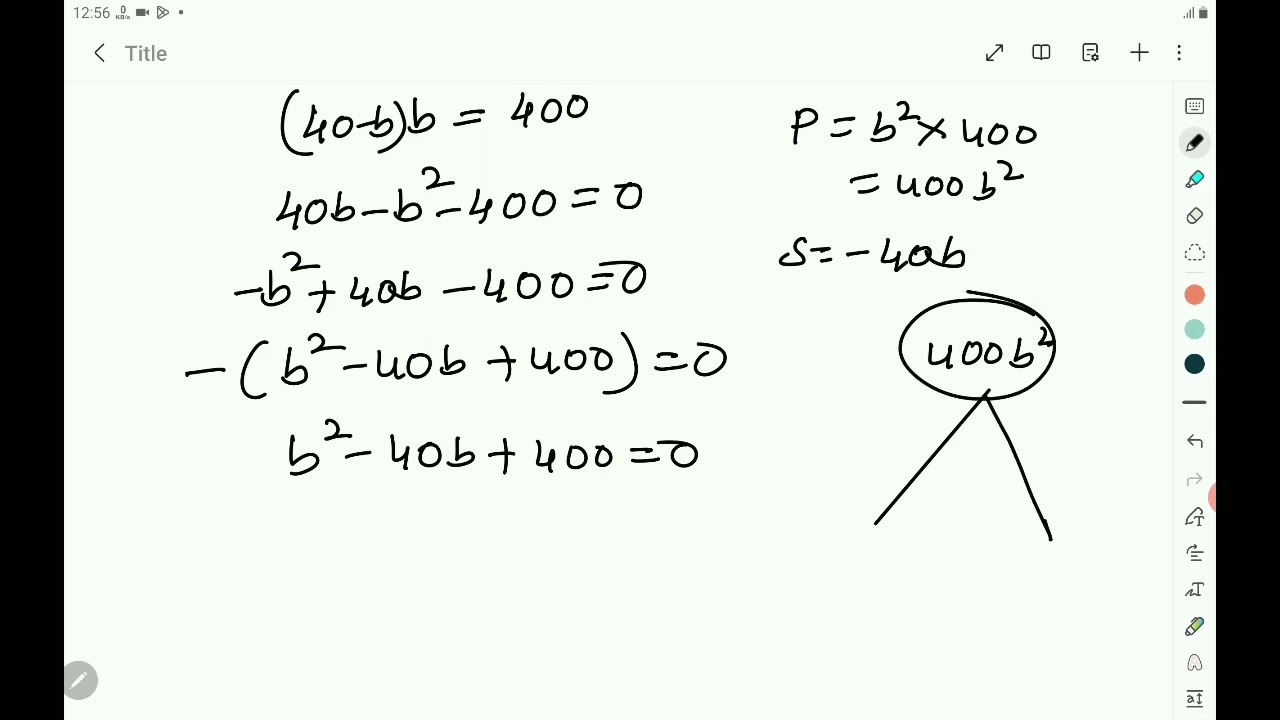 12:56 0 KB/s
Title
(40-b)b = 400
40b-b²-400=0
-b²+40b-400=0
-(b²-40b+400)=0
b²-40b+400=0
P=b²×400
=400b²
S=-40b
400b²